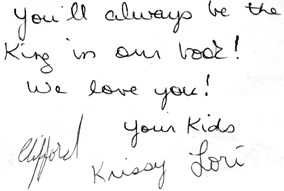 You'll always be the
King in our book!
We love you!
Your Kids
Clifford
Krissy Lori